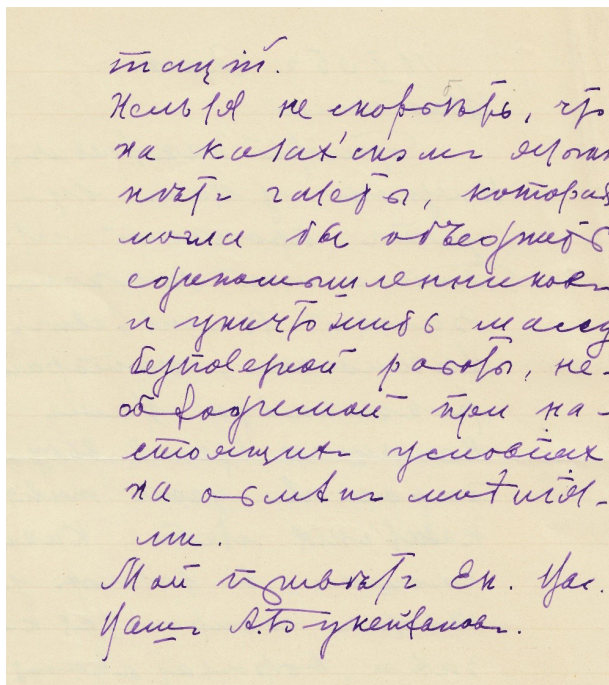 таціи.
Нельзя не скорбѣть, что
на казах'ском язык
нѣтъ газеты, которая
могла бы объединить
единомышленниковъ
и уничтожить массу
безполезной работы, не-
обходимой при на-
стоящихъ условіяхъ
на обмѣнъ мнѣнія-
ми.
Мой привѣтъ Ек. Ив.
Вашъ А. Букейхановъ.